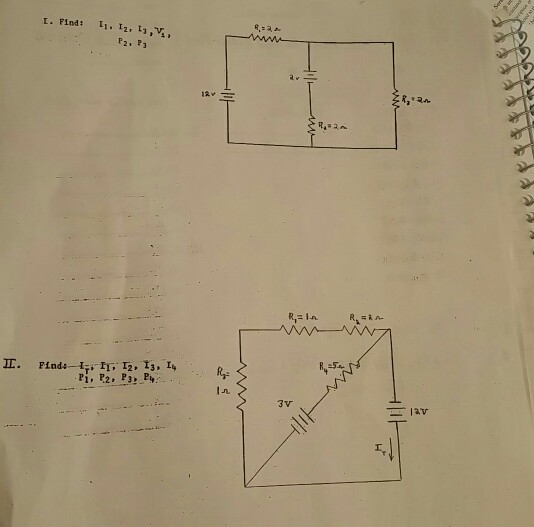 I. Find: I₁, I₂, I₃, V₁,
P₂, P₃
R₁=2Ω
2v
12v
R₂=2Ω
R₃=2Ω
II. Find: I_T, I₁, I₂, I₃, I₄
P₁, P₂, P₃, P₄
R₁=1Ω
R₂=2Ω
R₃=
1Ω
R₄=5Ω
3V
12V
I_T